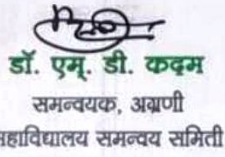 डॉ. एम्. डी. कदम
समन्वयक, अग्रणी
महाविद्यालय समन्वय समिती